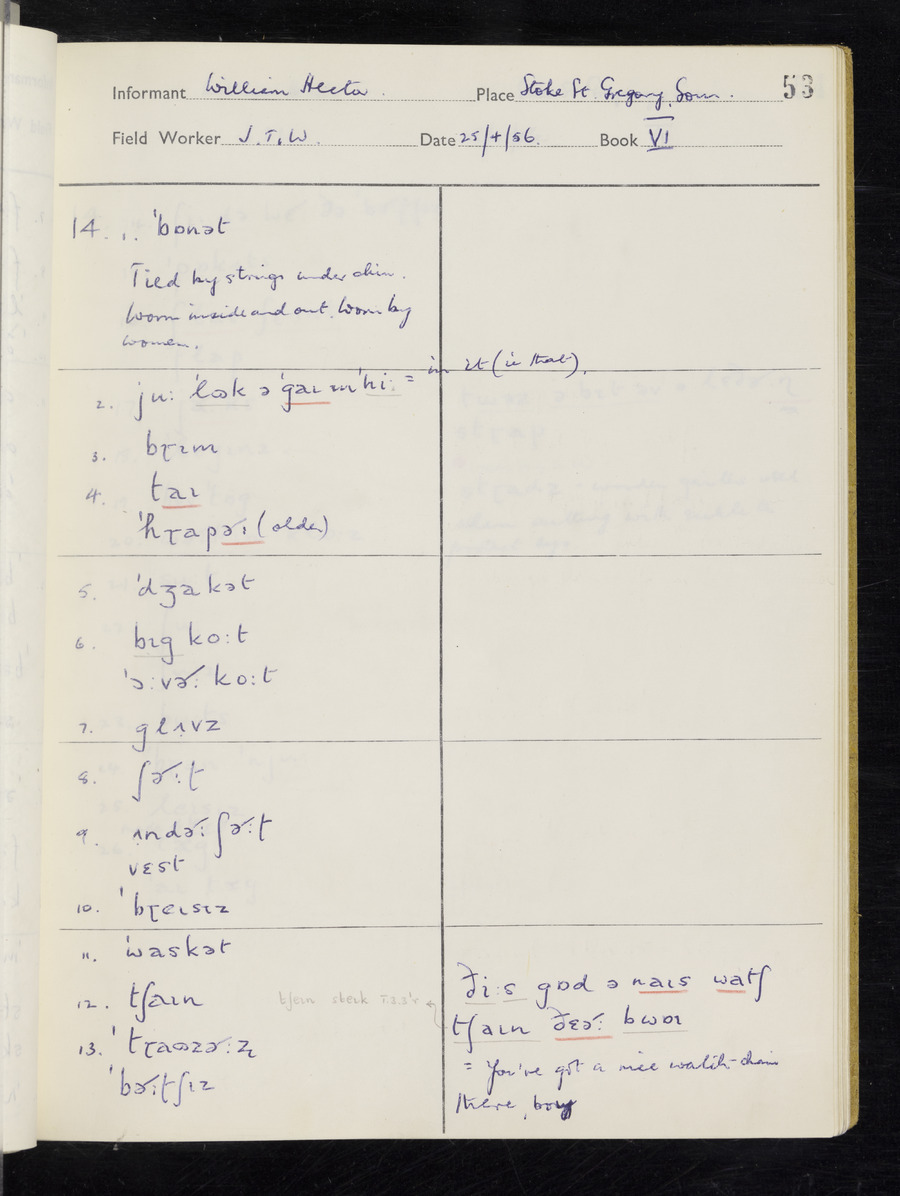 Informant William Hector. Place Stoke St. Gregory, Som. 53
Field Worker J.T.W. Date 25/4/56. Book VI
14. 1. ˈbɒnət
Tied by strings under chin.
Worn inside and out. Worn by
women.
2. ju: ˈlɷk ə ˈgaɪ ɪn ˈni: = in it (in that).
3. bɽɪm
4. taɪ
ˈhɽapəɹ (older)
5. ˈdʒakət
6. bɪg ko:t
ˈɔ:vəʴ: ko:t
7. glʌvz
8. ʃəʴ:t
9. ʌndəʴ: ʃəʴ:t
vɛst
10. ˈbɽeɪsɪz
11. ˈwaskət
12. tʃaɪn
13. ˈtɽaɷzəʴ:ʐ
ˈbəʴ:tʃɪz
ði:s gɒd ə naɪs watʃ
tʃaɪn ðɛəʴ: bwɒɪ
= You've got a nice watch-chain
there, boy